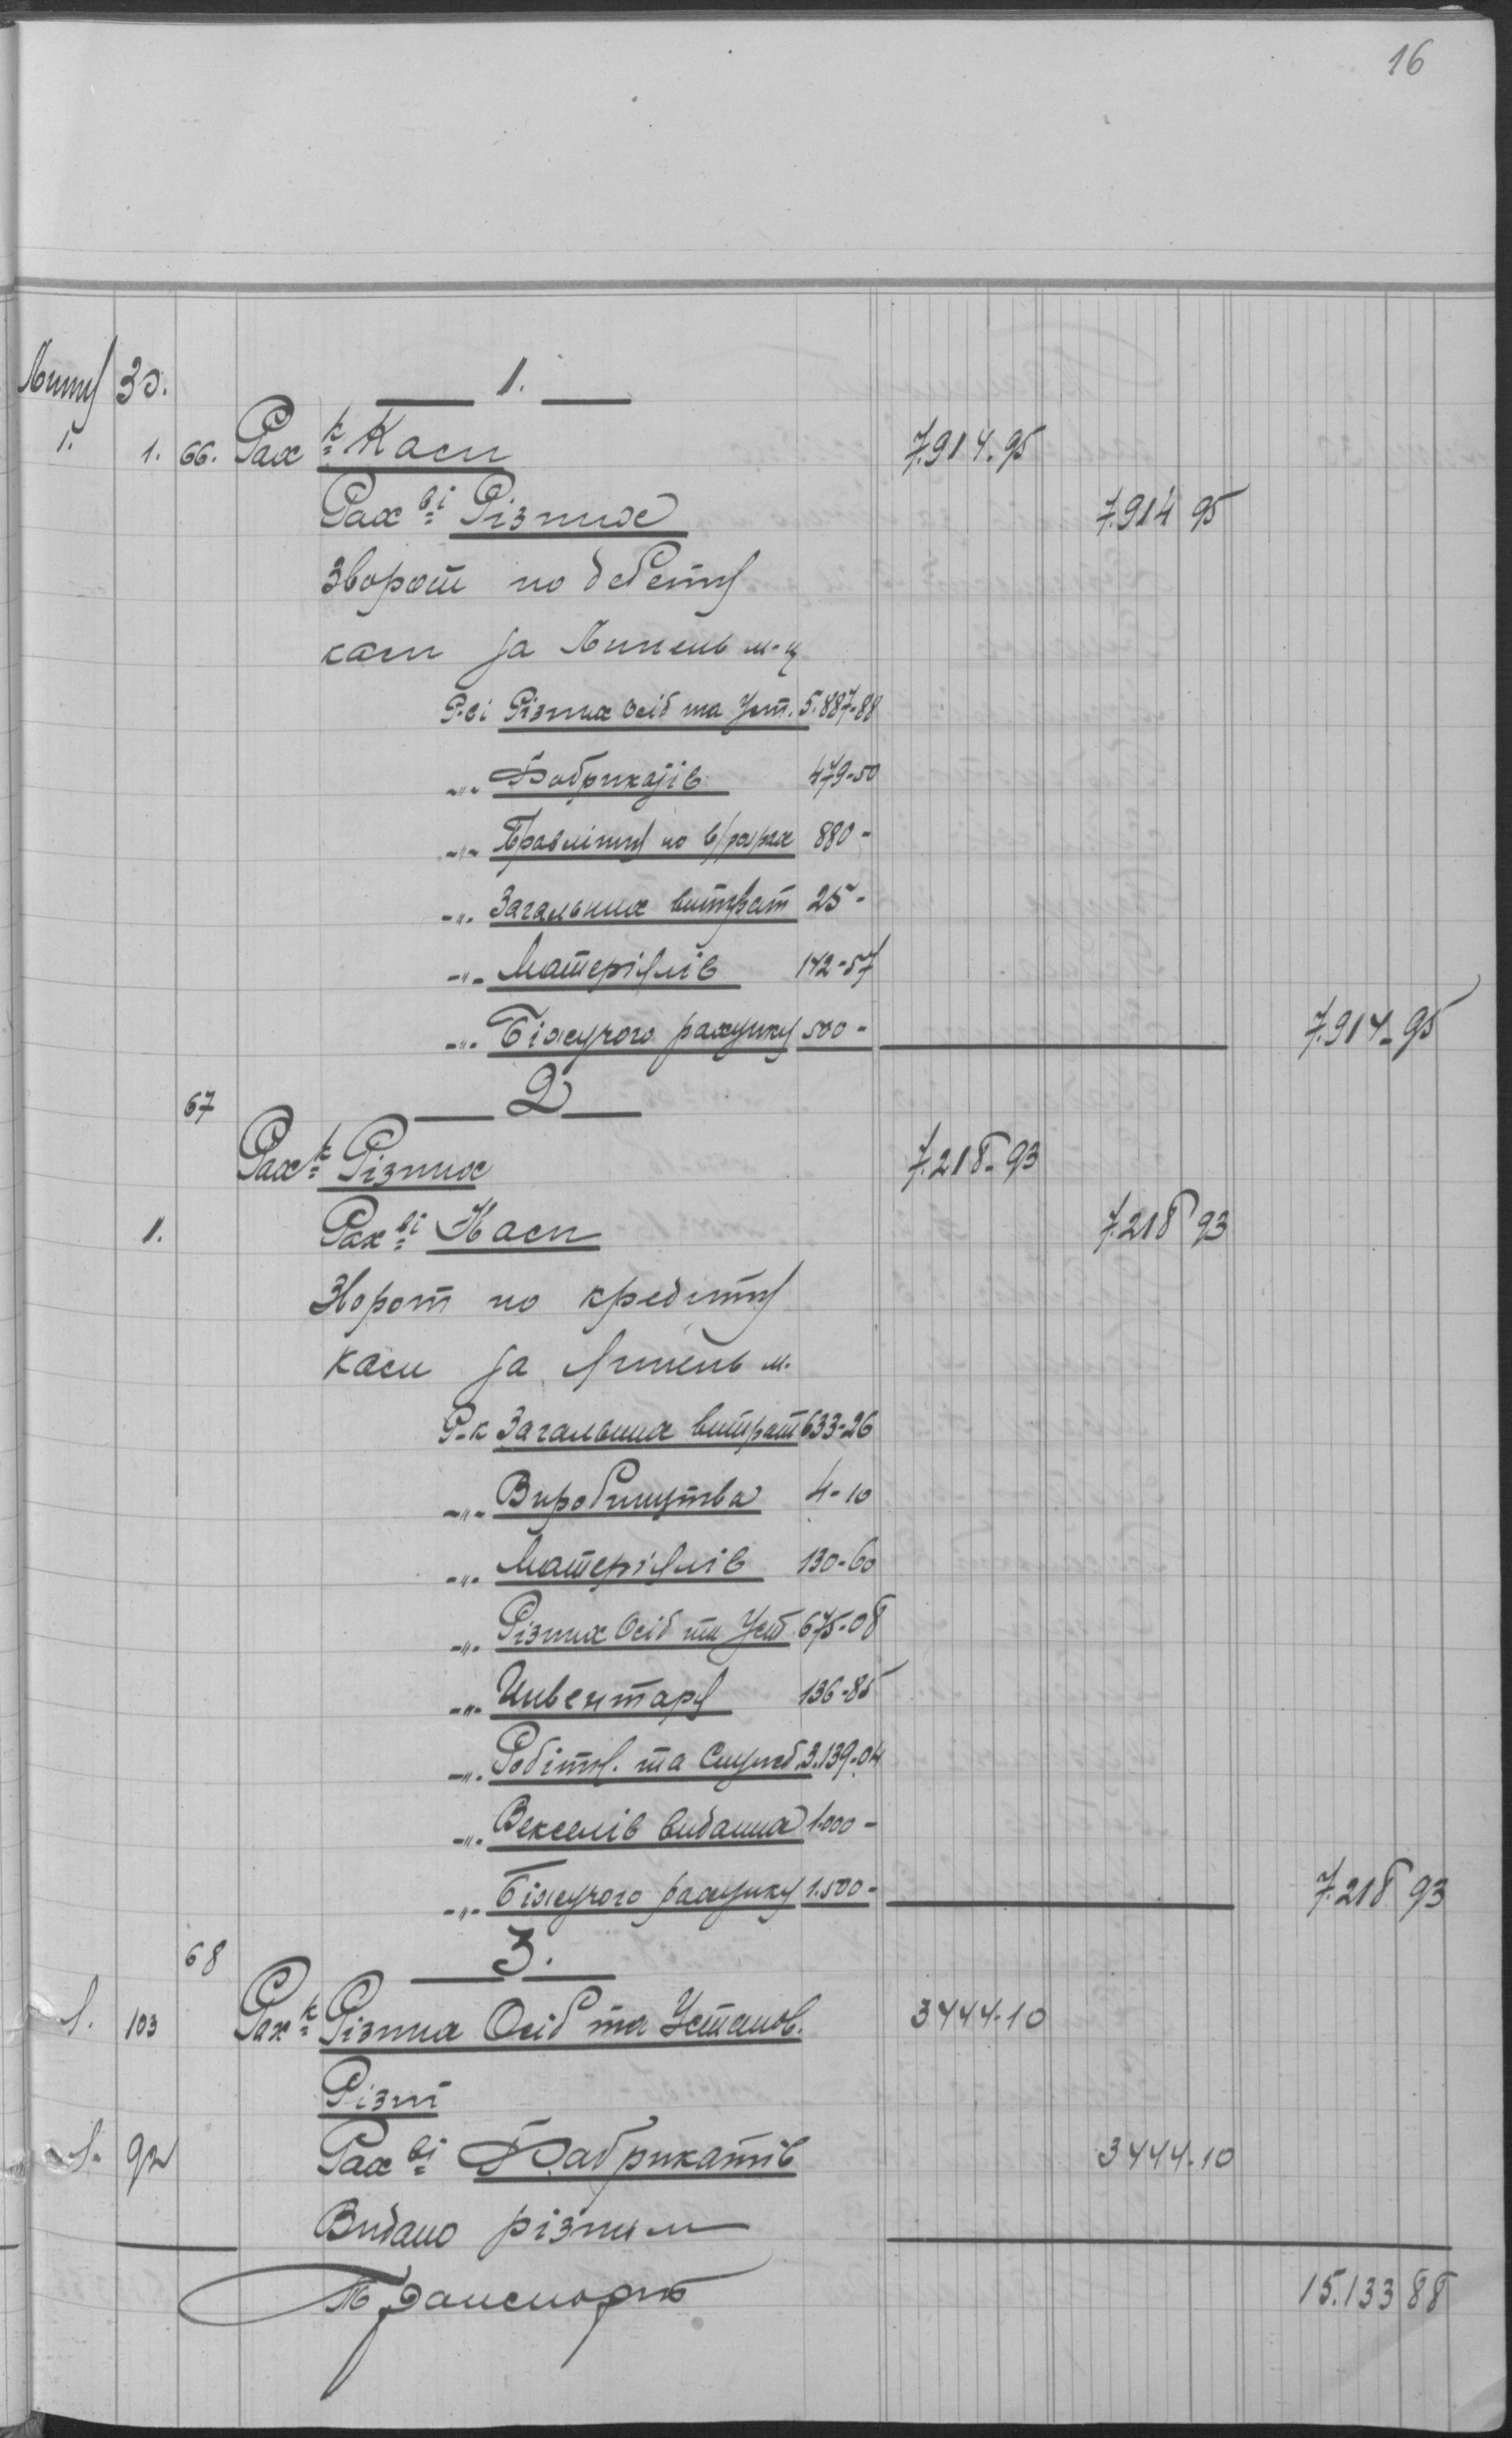 16
Липня 30. 1.
1. 1. 66. Рах-к Каси 7.914.95
Рах-ві Різних 7.914 95
Зворот по дебету
каси за Липень м-ц
Р-ві Різних Осіб та Уст. 5.887-88
-"- Фабрикатів 479-50
-"- 880-
-"- Загальних витрат 25-
-"- Матеріялів 142-57
-"- Біжучого рахунку 500- 7.914-95
67 2
Рах-к Різних 7.218-93
1. Рах-ві Каси 7.218 93
Зворот по кредиту
каси за Липень м.
Р-к Загальних витрат 633-26
-"- Виробництва 4-10
-"- Матеріялів 130-60
-"- Різних Осіб та Уст 675-08
-"- Инвентаря 136-85
-"- Робітн. та Служб. 3.139-04
-"- Векселів виданих 1.000-
-"- Біжучого рахунку 1.500- 7.218 93
68 3.
1. 103 Рах-к Різних Осіб та Установ. 3444-10
Різні
1. 92 Рах-ві Фабрикатів 3444-10
Видано різним
Транспорт 15.133 88